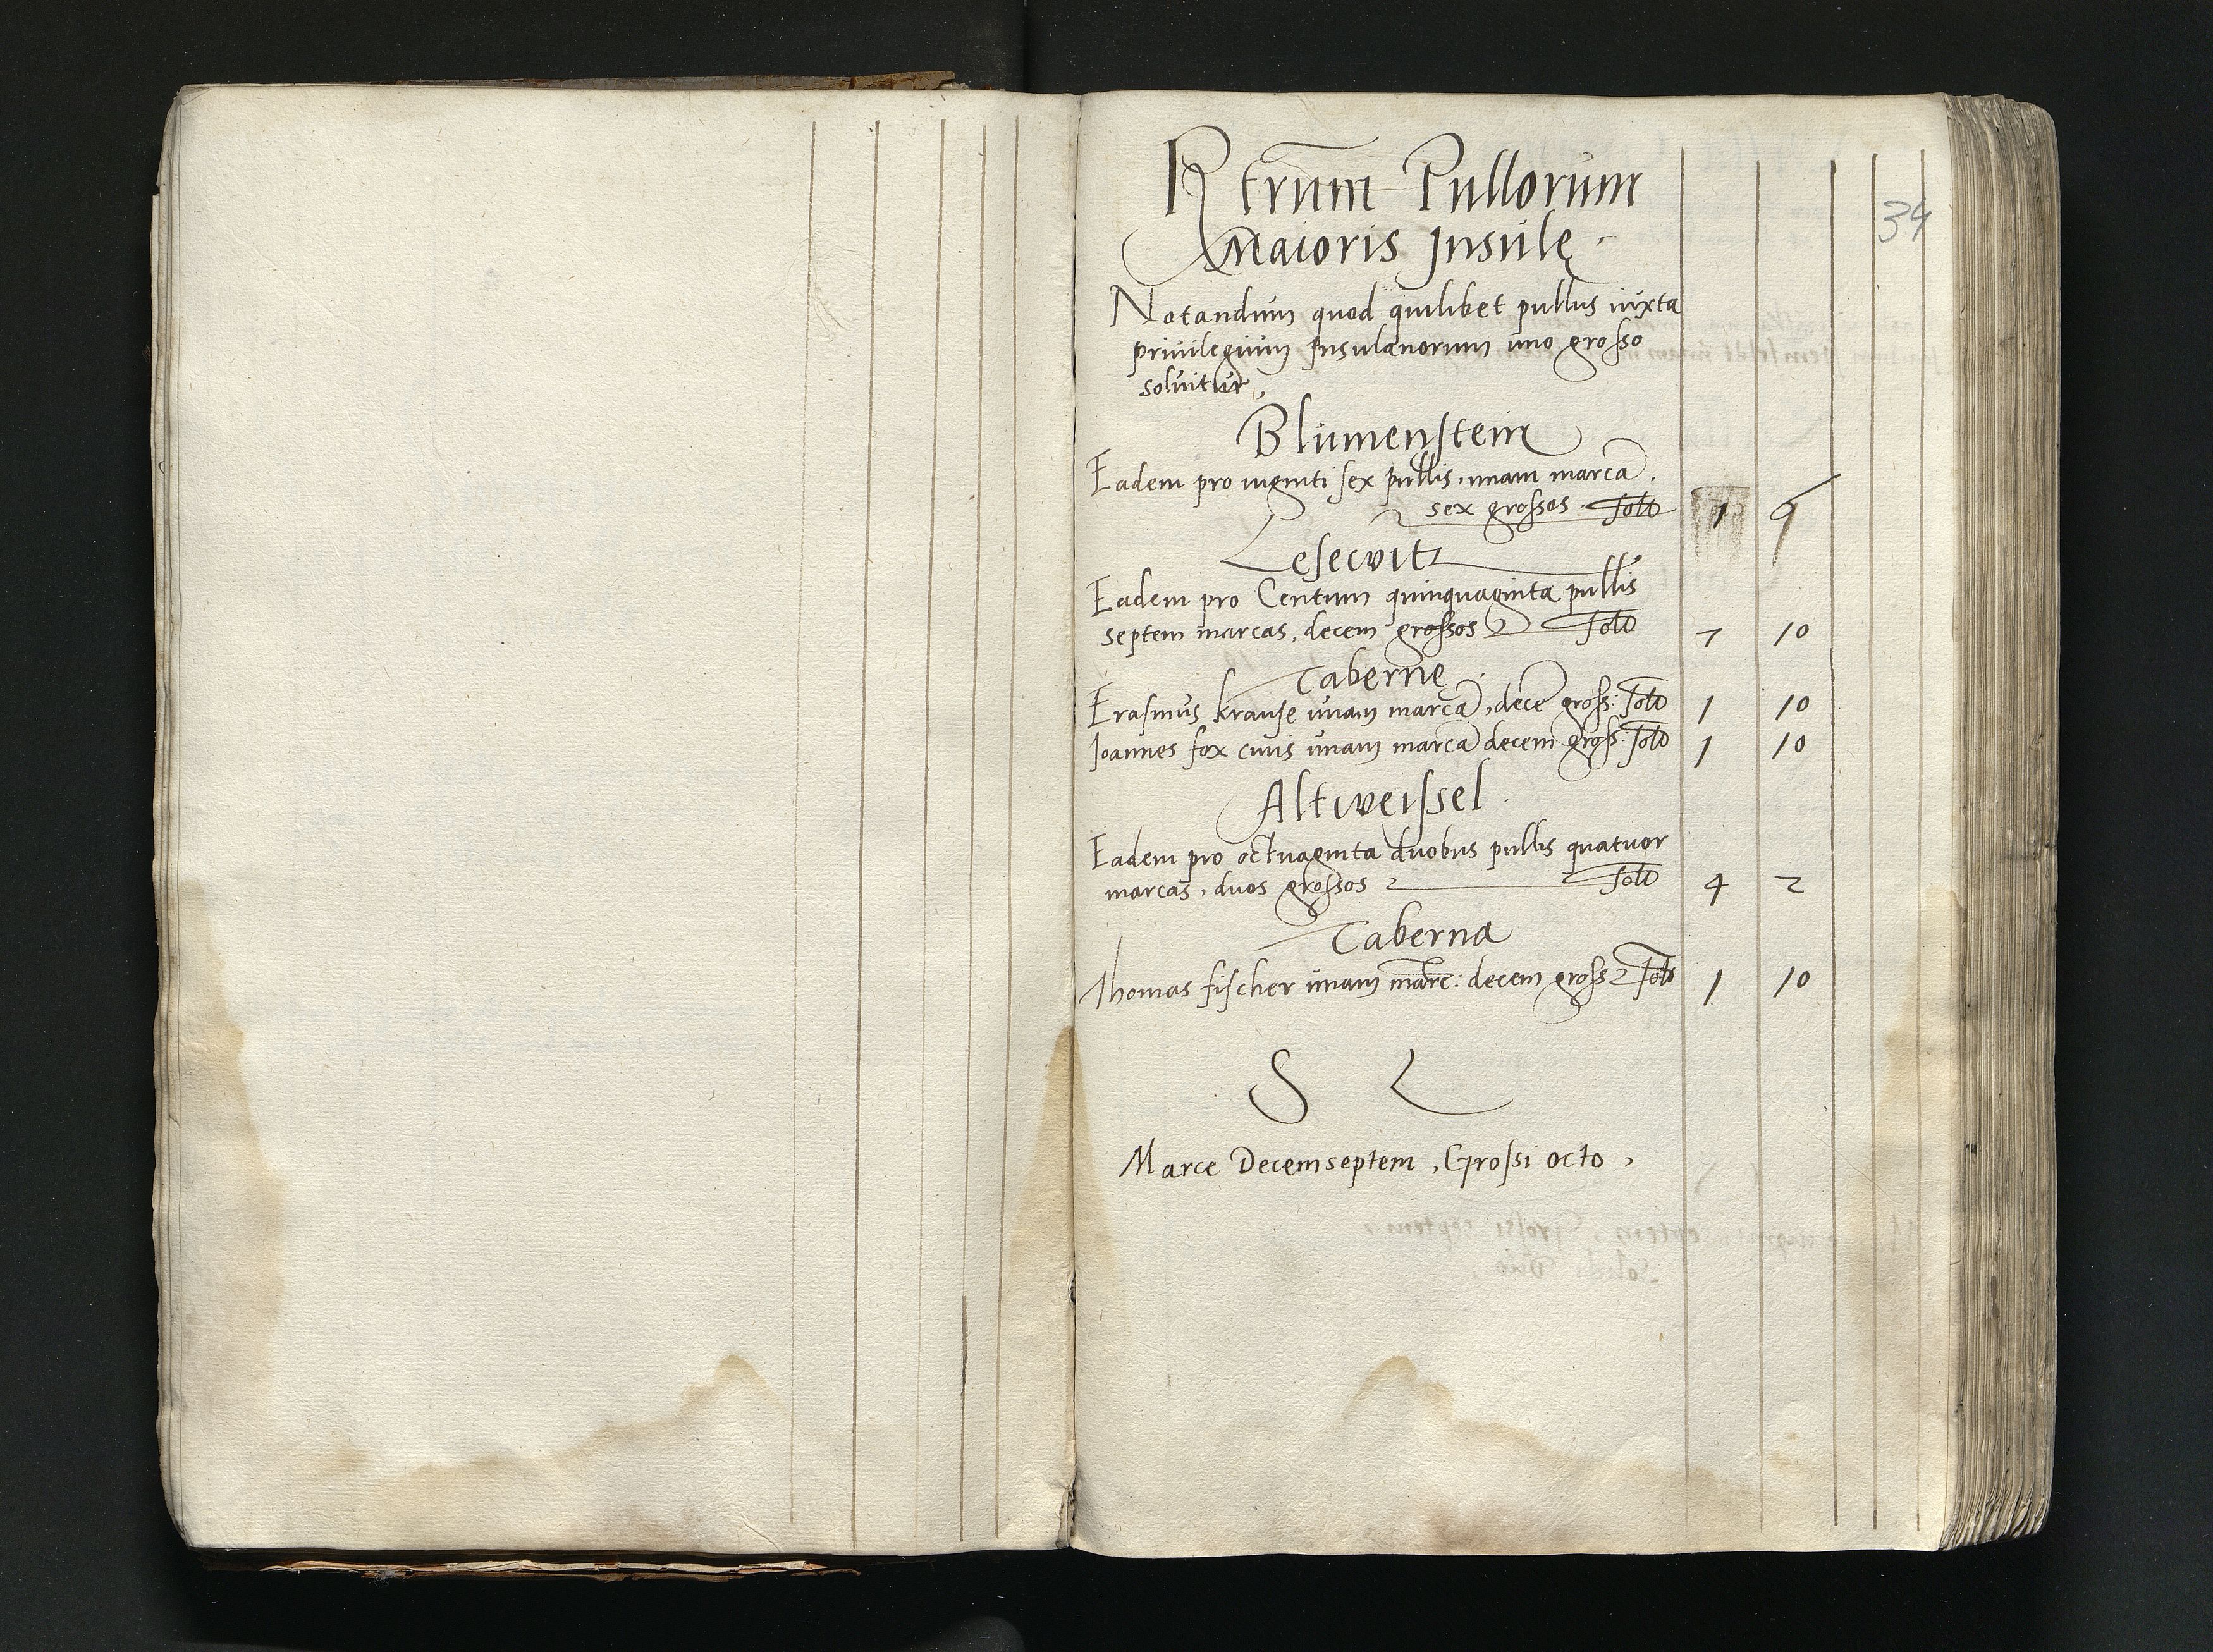 Rtrum Pullorum
Maioris Insulę.
34
Notandum quod quilibet pullus iuxta
priuilegium Insulanorum uno grosso
soluitur,
Blumenstein
Eadem pro uiginti sex pullis, unam marcā.
sex grossos. Solo 1 6
Lesewitz
Eadem pro Centum quinquaginta pullis
septem marcas, decem grossos Solo 7 10
Tabernę
Erasmus krause unam marcā, decē gross: Solo 1 10
Ioannes fox ciuis unam marcā decem gross: Solo 1 10
Altweissel.
Eadem pro octuaginta duobus pullis quatuor
marcas, duos grossos Solo 4 2
Taberna
Thomas fischer unam marc: decem gross Solo 1 10
S L
Marce Decemseptem, Grossi octo,